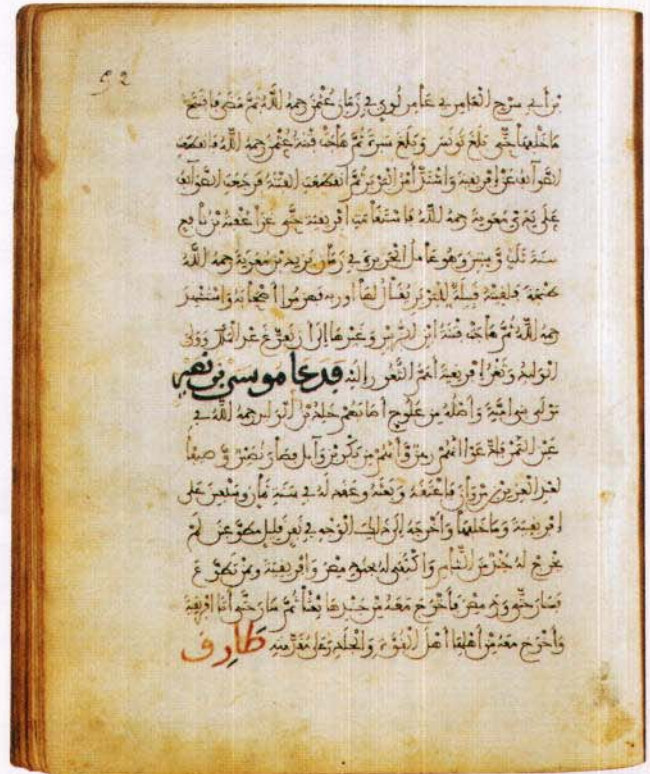 52
بن أبي سرح العامري عامر لوي في زمان عثمن رحمه الله ثم مضى فافتتح
ما خلفها حتى بلغ تونس وبلغ سبرة ثم هاجت فتنة عثمن رحمه الله فانقطعت
الطوائف عن افريقية واشتد أمر البربر ثم انقطعت الفتنة فرجعت الطوائف
على يدي معوية رحمه الله فاستقامت افريقية حتى غزا عقبة بن نافع
سنة ثلث وستين وهو عامل في زمان يزيد بن معوية رحمه الله
طنجة فلقيته قبيلة للبربر يقال لها أوربه فهزموا أصحابه واستشهد
رحمه الله ثم هاجت فتنة ابن الزبير وغيرها إلى أن تفرغ عبد الملك وولى
الوليد وثغر افريقية أهم الثغور إليه فدعا موسى بن نصير
مولى بنوا مية وأصله من علوج أصابهم خلد بن الوليد رحمه الله في
عين التمر انهم وأنهم من بكر بن وآيل فصار نصير وصيفا
لعبد العزيز بن مروان فأعتقه وبعثه وعقد له في سنة ثمان وسبعين على
افريقية وما خلفها وأخرجه إلى ذلك الوجه في نفر قليل مطوعين لم
يخرج له جند من الشام واكتفى له بجنود مصر وافريقية ومن تطوع
فسار حتى ورد مصر فأخرج معه من جندها بعثا ثم سار حتى أتى افريقية
وأخرج معه من أهلها أهل القوة والجلد وعلى مقدمته طارق